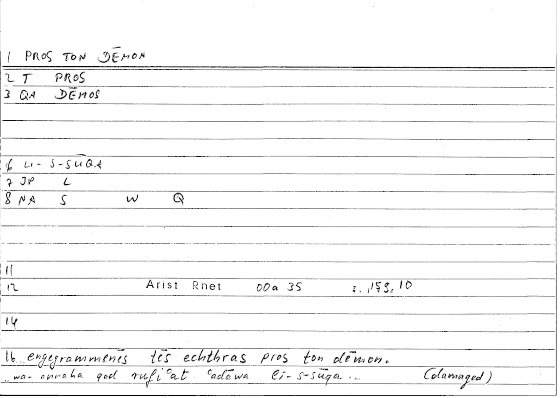 1 PROS TON DĒMON
2 T PROS
3 QA DĒMOS
6 LI-S-SŪQA
7 JP L
8 NA S W Q
11
12 Arist Rhet 00a 35 159,10
14
16 engegrammenēs tēs echthras pros ton dēmon.
..wa-annaha qad rufiʿat ʿadāwa li-s-sūqa... (damaged)